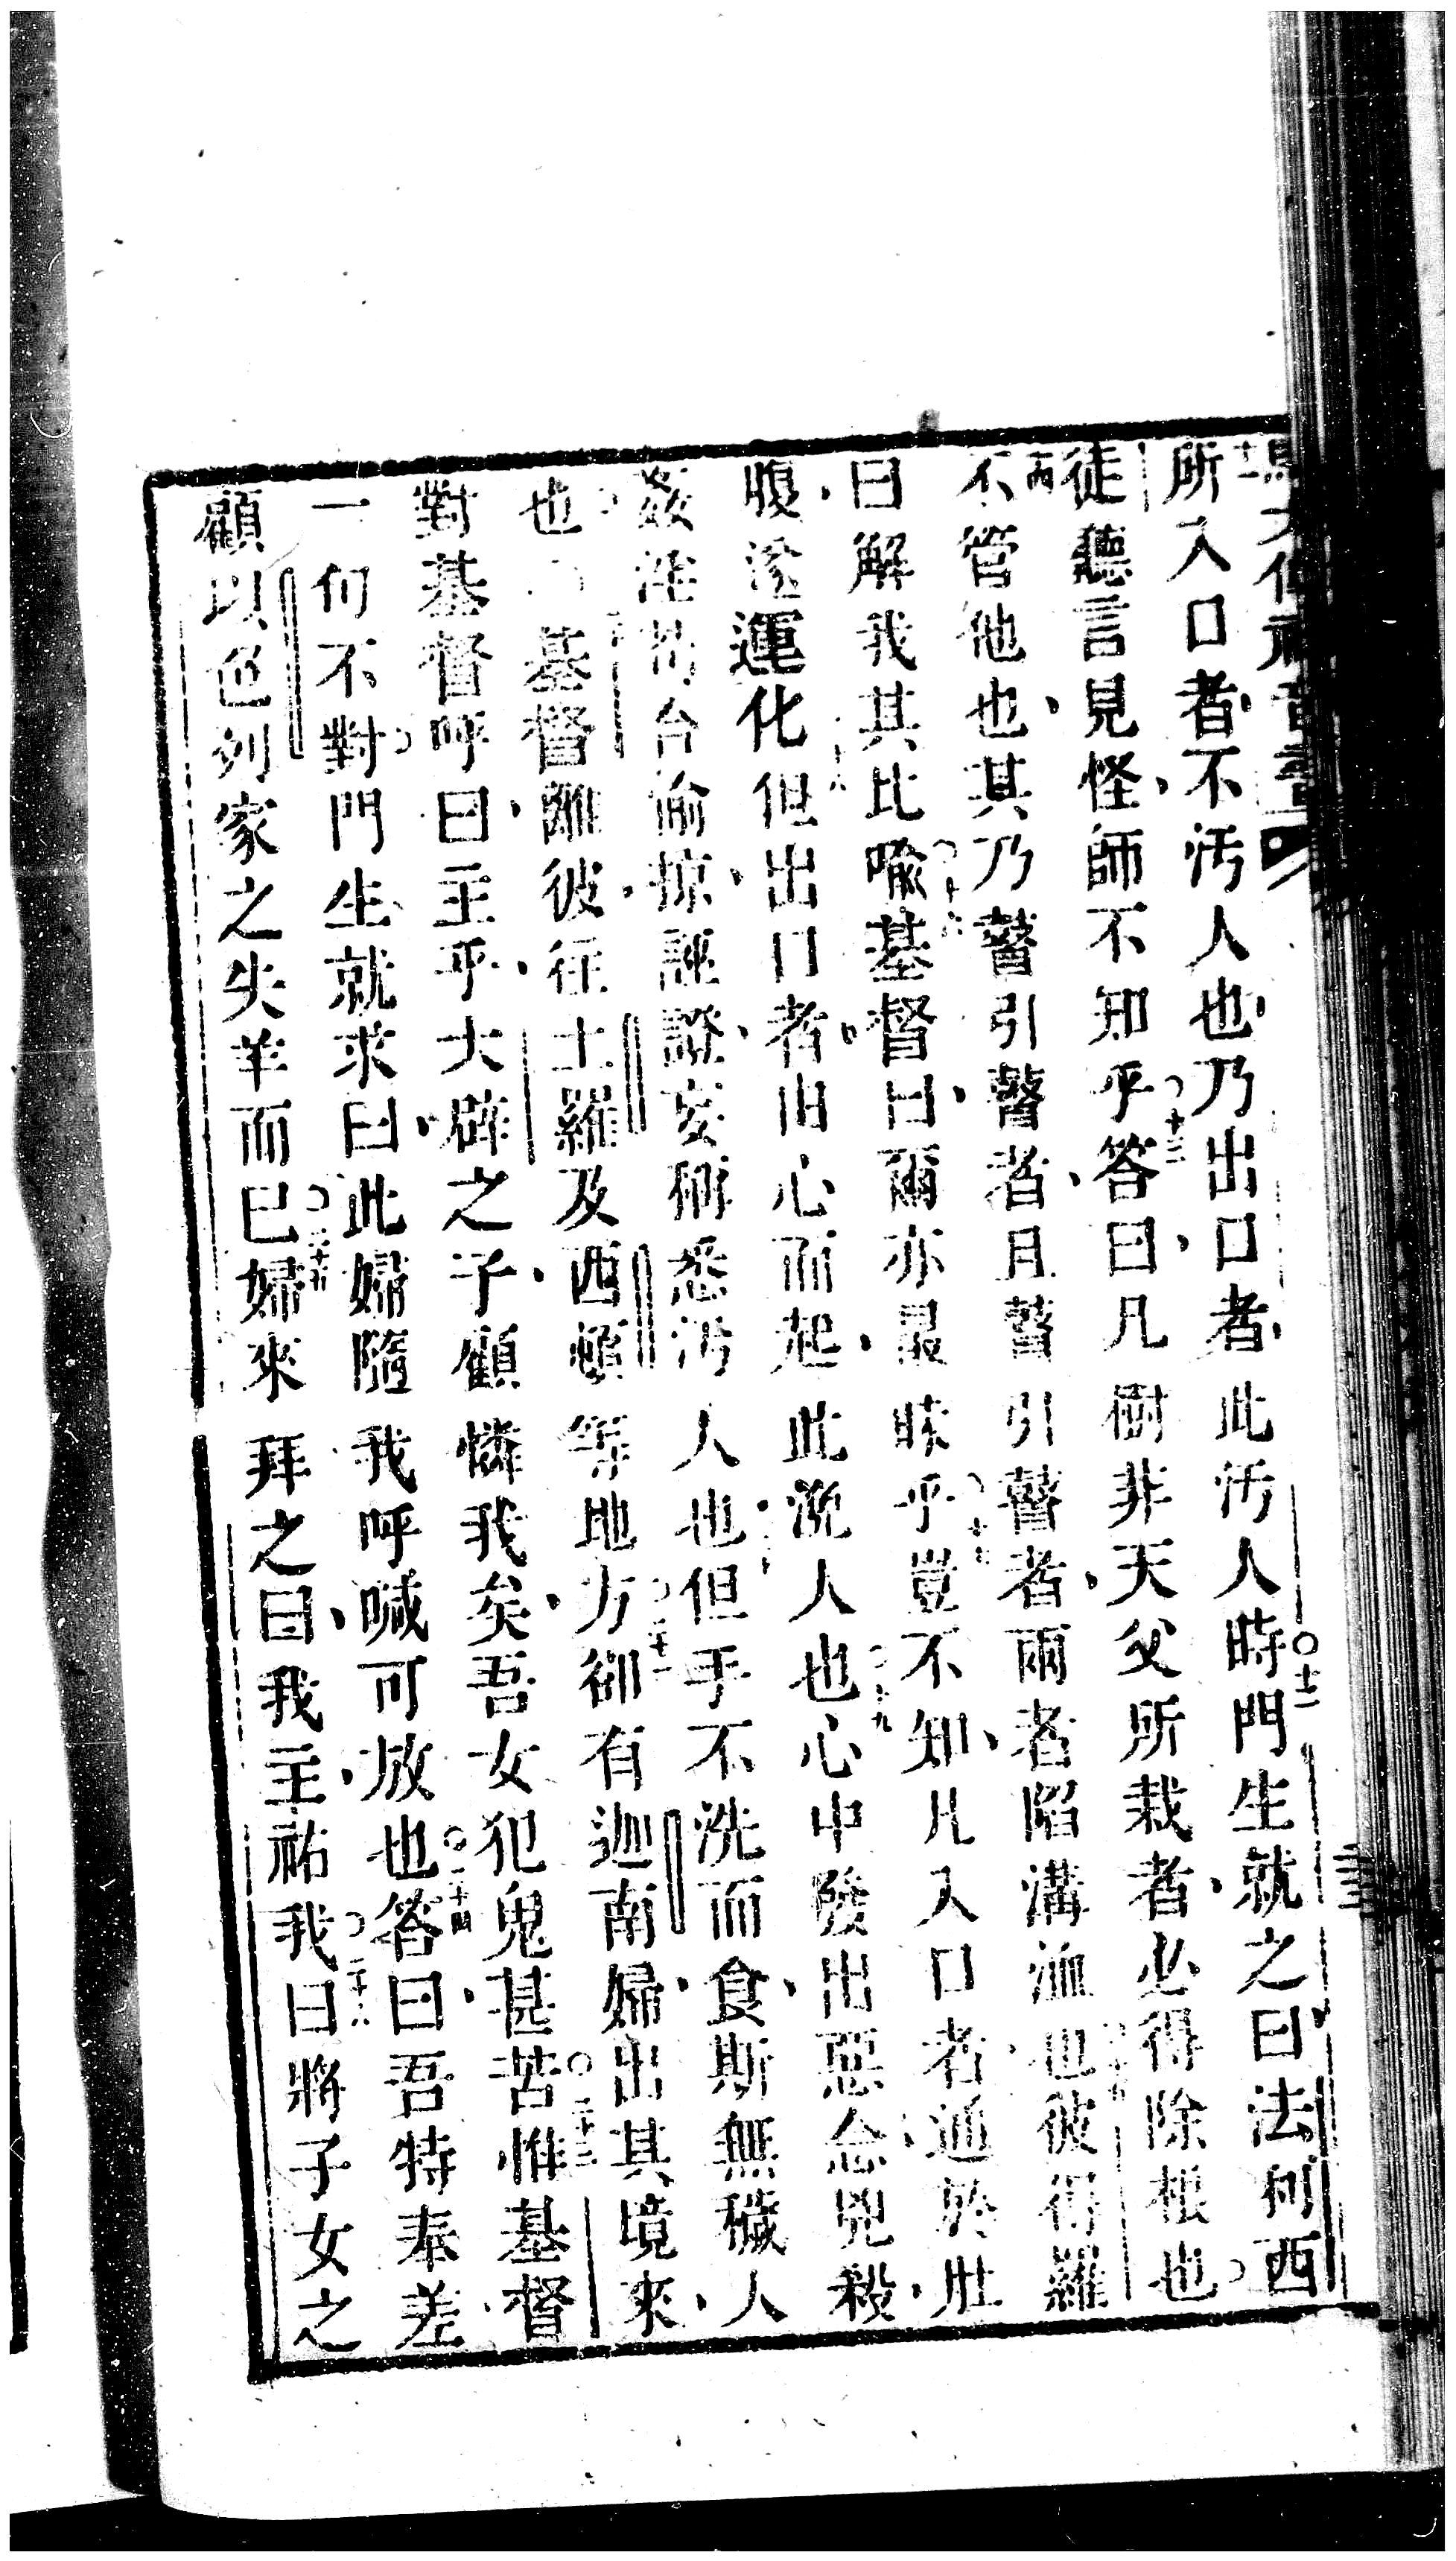 所入口者不汚人也乃出口者此汚人〇十二時門生就之曰法利西
徒聽言見怪師不知乎〇十三答曰凡樹非天父所栽者必得除根也
不管他也其乃瞽引瞽者且瞽引瞽者兩者陷溝洫也彼得羅
曰解我其比喻〇十六基督曰爾亦最昧乎豈不知凡入口者通於肚
腹遂運化〇十八但出口者由心而起此流人也〇十九心中發出惡念兇殺
姦淫苟合偷掠誣證妄稱悉汚人也但手不洗而食斯無穢人
也〇基督離彼往土羅及西頓等地方卻有迦南婦出其境來
對基督呼曰主乎大辟之子顧憐我矣吾女犯鬼甚苦〇二十三惟基督
一句不對門生就求曰此婦隨我呼喊可放也〇二十四答曰吾特奉差
顧以色列家之失羊而已〇二十五婦來拜之曰我主祐我〇二十六曰將子女之